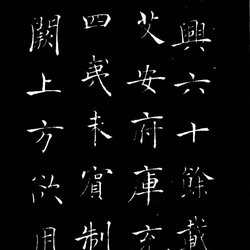 興六十餘載
艾安府庫充
四夷未賓制
闕上方欲用